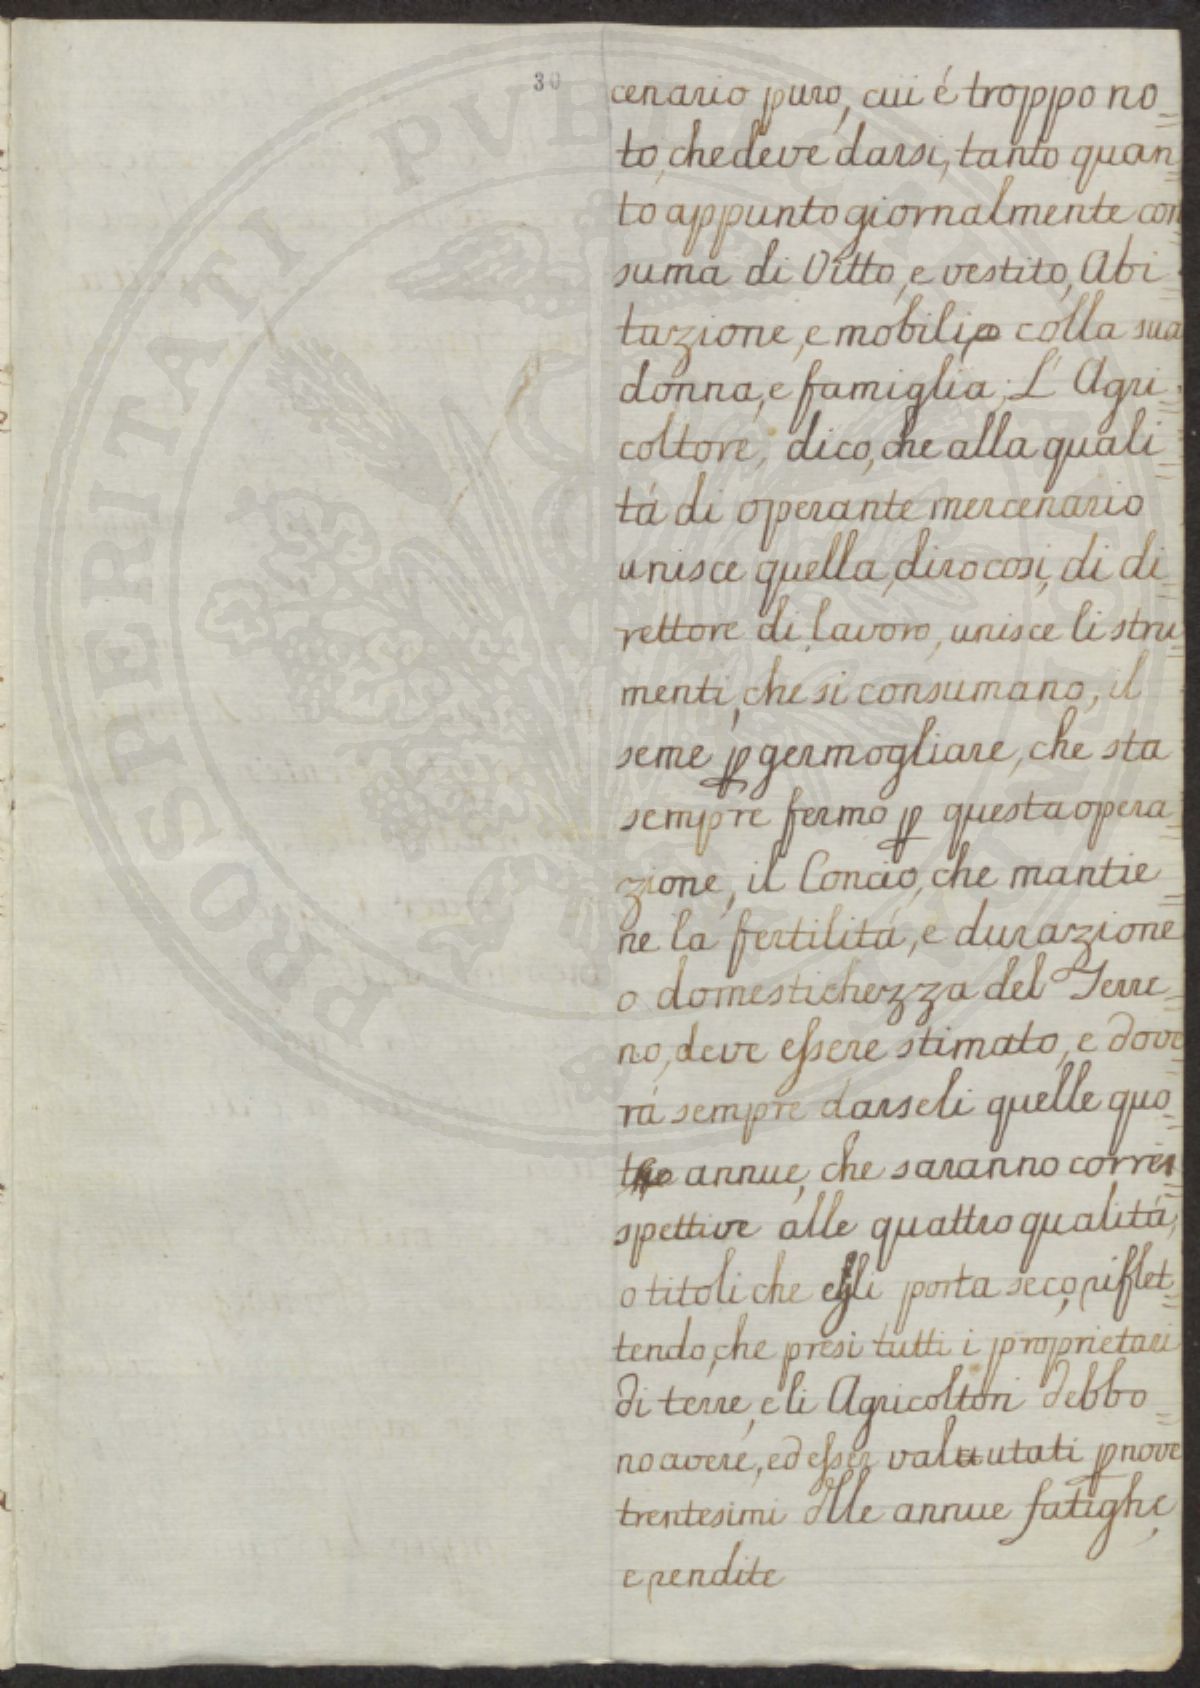 30
cenario puro, cui é troppo no=
to, che deve darsi, tanto quan=
to appunto giornalmente con
suma di Vitto, e vestito, Abi=
tazione, e mobili colla sua
donna, e famiglia; L' Agri=
coltore, dico, che alla quali=
tá di operante mercenario
unisce quella, diro cosi, di di=
rettore di lavoro, unisce li stru=
menti, che si consumano, il
seme p germogliare, che sta
sempre fermo p questa opera=
zione, il Concio, che mantie=
ne la fertilitá, e durazione
o domestichezza del Terre=
no, deve essere stimato, e dove
rá sempre darseli quelle quo=
te annue, che saranno corri=
spettive alle quattro qualitá,
o titoli che egli porta seco, riflet=
tendo, che presi tutti i proprietari
di terre, e li Agricoltori debbo=
no avere, ed esser valuutati p nove
trentesimi dlle annue fatighe,
e rendite
PROSPERITATI PUBLICAE